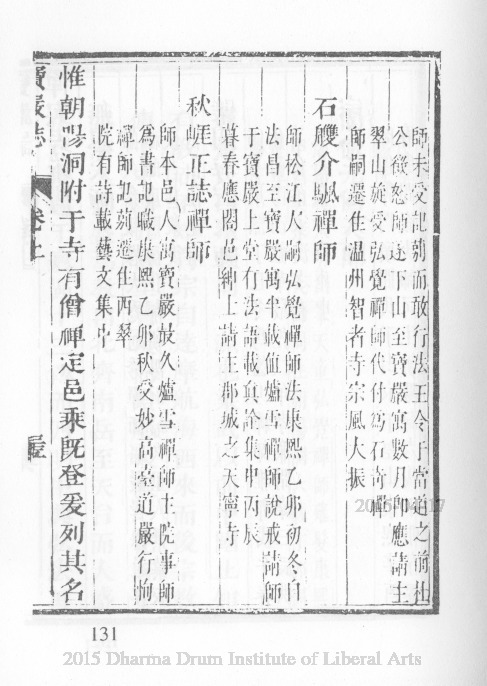 師未受記莂而敢行法王令于當道之前杜
公徵恕師遂下山至寶嚴寓數月卽應請主
翠山旋受弘覺禪師代付爲石奇禪
師嗣遷住温州智者寺宗風大振
石䑃介騦禪師
師松江人嗣弘覺禪師法康熙乙卯初冬自
法昌至寶嚴寓半載值爐雪禪師說戒請師
于寶嚴上堂有法語載真詮集中丙辰
暮春應閤邑紳士請主郡城之天寧寺
秋崕正誌禪師
師本邑人寓寶嚴最久爐雪禪師主院事師
爲書記職康熙乙卯秋受妙高臺道嚴行恂
禪師記莂遷住西翠
院有詩載藝文集中
惟朝陽洞附于寺有僧禪定邑乘旣登爰列其名
寶嚴誌 卷上
131
2015 Dharma Drum Institute of Liberal Arts